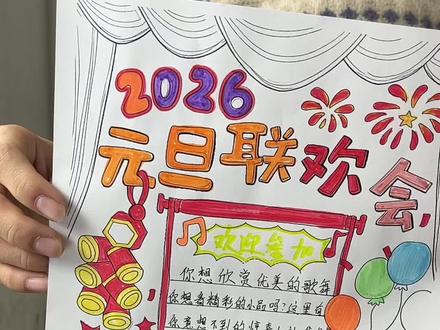 2026
元旦联欢会
欢迎参加
你想欣赏优美的歌舞
你想看精彩的小品吗?这里有
你意想不到的惊喜